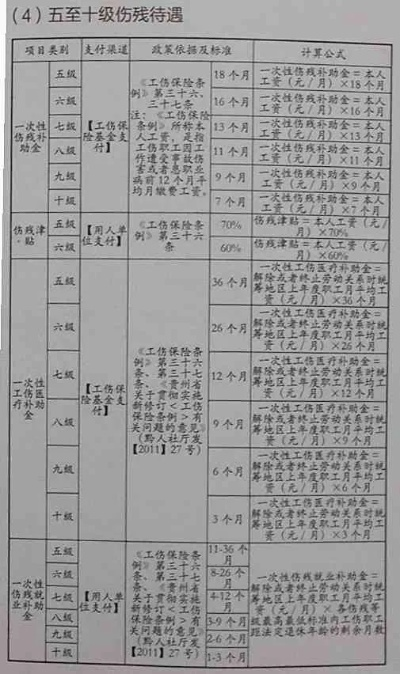 (4) 五至十级伤残待遇
项目类别 支付渠道 政策依据及标准 计算公式
一次性
伤残补
助金
五级
六级
七级
八级
九级
十级
【工伤保
险基金支
付】
《工伤保险条
例》第三十六、
三十七条
注：《工伤保险
条例》所称本
人工资，是指
工伤职工因工
作遭受事故伤
害或者患职业
病前12个月平
均月缴费工资。
18个月
16个月
13个月
11个月
9个月
7个月
一次性伤残补助金=本人
工资（元/月）×18个月
一次性伤残补助金=本人
工资（元/月）×16个月
一次性伤残补助金=本人
工资（元/月）×13个月
一次性伤残补助金=本人
工资（元/月）×11个月
一次性伤残补助金=本人
工资（元/月）×9个月
一次性伤残补助金=本人
工资（元/月）×7个月
伤残津
贴
五级
六级
【用人单
位支付】
《工伤保险条
例》第三十六
条
70%
60%
伤残津贴=本人工资（元/
月）×70%
伤残津贴=本人工资（元/
月）×60%
一次性
工伤医
疗补助
金
五级
六级
七级
八级
九级
十级
【工伤保
险基金支
付】
《工伤保险条
例》第三十六
条、第三十七
条、《贵州省
关于贯彻实施
新修订<工伤
保险条例>有
关问题的意见》
（黔人社厅发
【2011】27号）
36个月
26个月
12个月
9个月
6个月
3个月
一次性工伤医疗补助金=
解除或者终止劳动关系时统
筹地区上年度职工月平均工
资（元/月）×36个月
一次性工伤医疗补助金=
解除或者终止劳动关系时统
筹地区上年度职工月平均工
资（元/月）×26个月
一次性工伤医疗补助金=
解除或者终止劳动关系时统
筹地区上年度职工月平均工
资（元/月）×12个月
一次性工伤医疗补助金=
解除或者终止劳动关系时统
筹地区上年度职工月平均工
资（元/月）×9个月
一次性工伤医疗补助金=
解除或者终止劳动关系时统
筹地区上年度职工月平均工
资（元/月）×6个月
一次性工伤医疗补助金=
解除或者终止劳动关系时统
筹地区上年度职工月平均工
资（元/月）×3个月
一次性
伤残就
业补助
金
五级
六级
七级
八级
九级
十级
【用人单
位支付】
《工伤保险条
例》第三十六
条、第三十七
条、《贵州省
关于贯彻实施
新修订<工伤
保险条例>有
关问题的意见》
（黔人社厅发
【2011】27号）
11-36个
月
8-26个
月
4-12个
月
3-9个月
2-6个月
1-3个月
一次性伤残就业补助金=
解除或者终止劳动关系时统
筹地区上年度职工月平均工
资（元/月）×各伤残等
级最高最低标准内工伤职工
距法定退休年龄的剩余月数